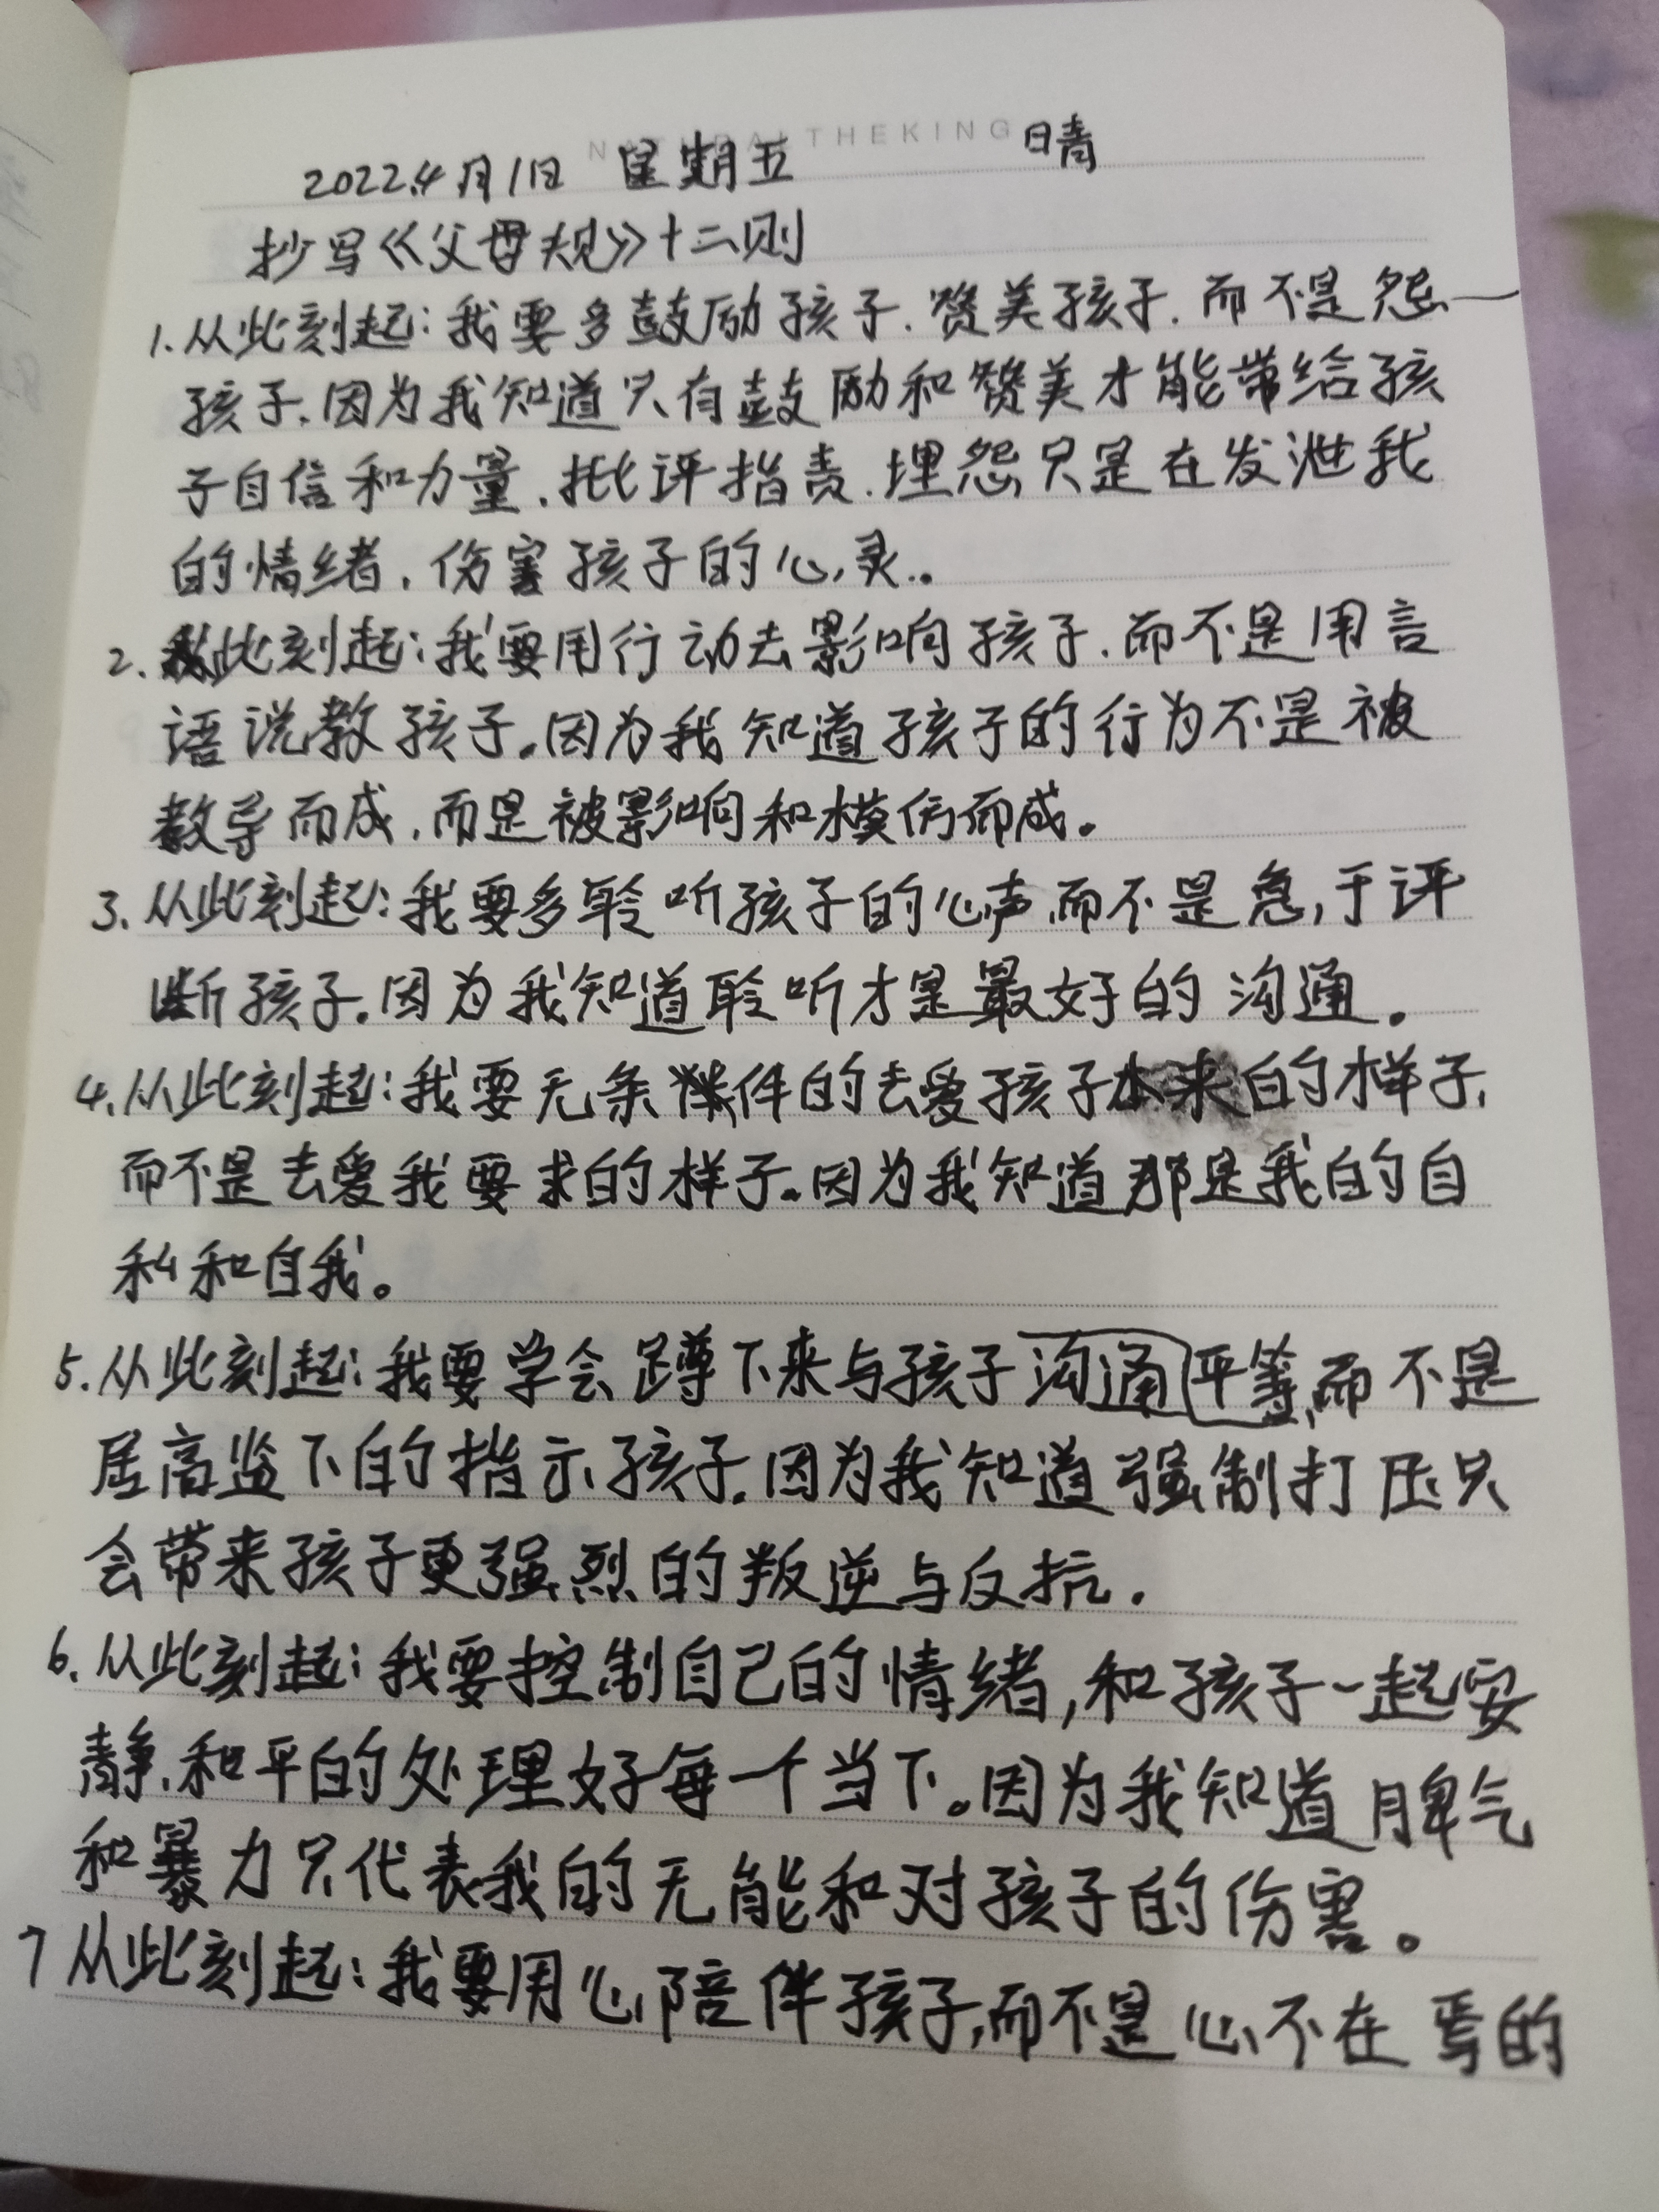 NATURALTHEKING
2022.4月1日 星期五 晴
抄写《父母规》十二则
1.从此刻起:我要多鼓励孩子.赞美孩子.而不是怨一
孩子.因为我知道只有鼓励和赞美才能带给孩
子自信和力量.批评指责.埋怨只是在发泄我
的情绪.伤害孩子的心灵..
2.从此刻起:我要用行动去影响孩子.而不是用言
语说教孩子.因为我知道孩子的行为不是被
教导而成.而是被影响和模仿而成。
3.从此刻起:我要多聆听孩子的心声.而不是急于评
断孩子.因为我知道聆听才是最好的沟通。
4.从此刻起:我要无条件的去爱孩子本来的样子,
而不是去爱我要求的样子。因为我知道那是我的自
私和自我。
5.从此刻起:我要学会蹲下来与孩子沟通平等,而不是
居高监下的指示孩子.因为我知道强制打压只
会带来孩子更强烈的叛逆与反抗.
6.从此刻起:我要控制自己的情绪,和孩子一起安
静.和平的处理好每一个当下。因为我知道脾气
和暴力只代表我的无能和对孩子的伤害。
7从此刻起:我要用心陪伴孩子,而不是心不在焉的